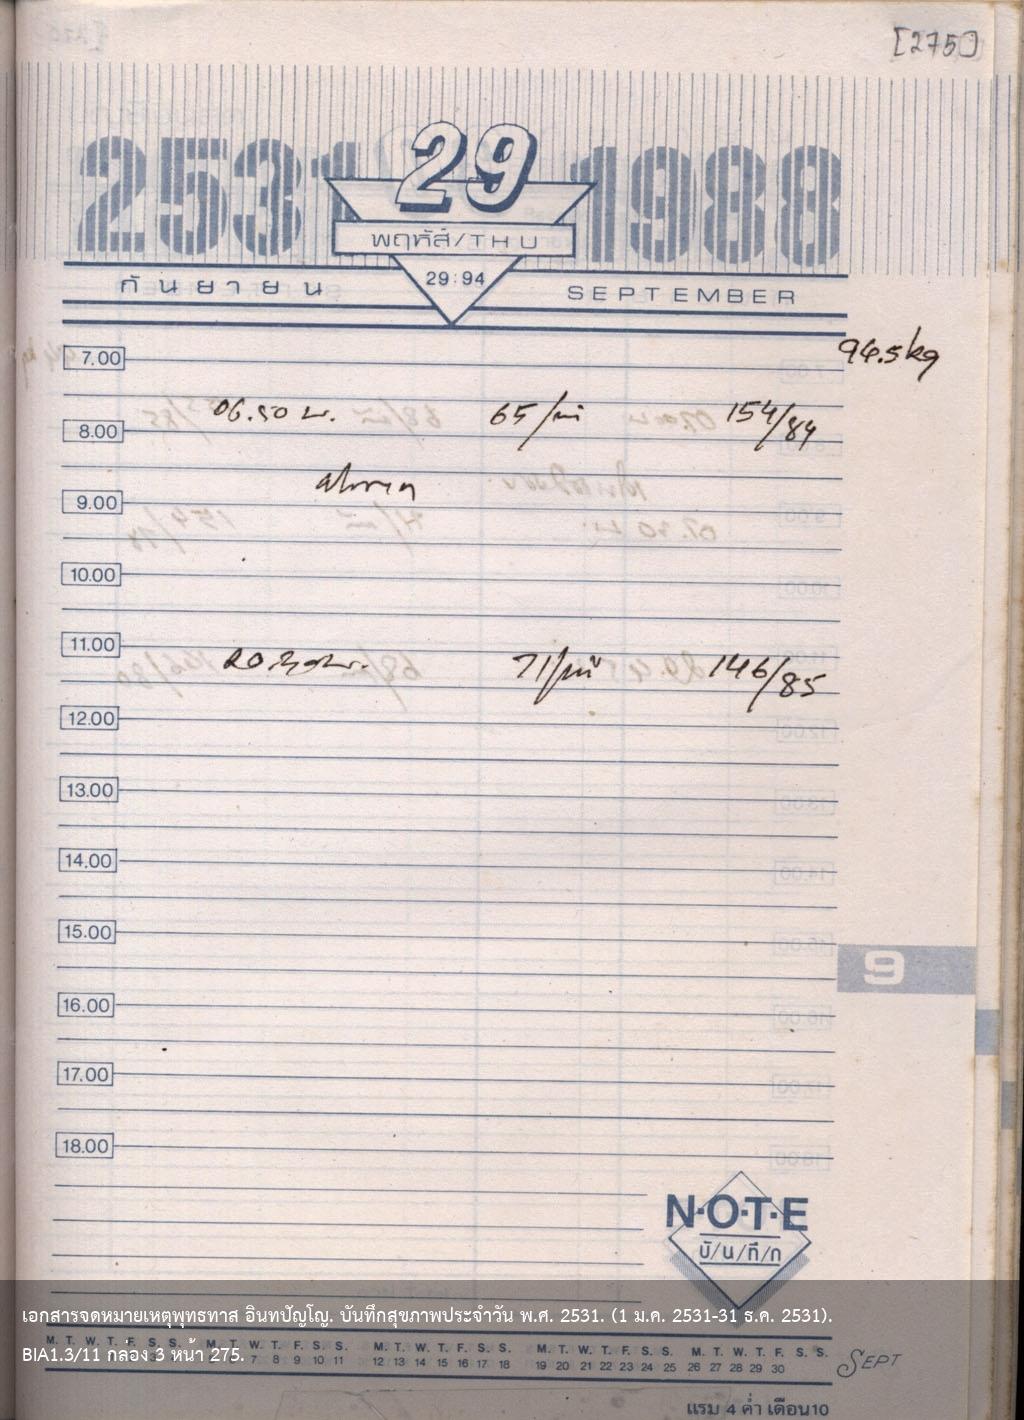 [275]
2531 29 1988
พฤหัส/THU
29:94
กันยายน SEPTEMBER
7.00 94.5kg
06.50 น. 65/นาที 154/84
8.00
9.00
10.00
11.00
71/นาที 146/85
12.00
13.00
14.00
15.00
9
16.00
17.00
18.00
N·O·T·E
บั/น/ทึ/ก
เอกสารจดหมายเหตุพุทธทาส อินทปัญโญ. บันทึกสุขภาพประจำวัน พ.ศ. 2531. (1 ม.ค. 2531-31 ธ.ค. 2531).
M. T. W. T. F. S. S. M. T. W. T. F. S. S. M. T. W. T. F. S. S. M. T. W. T. F. S. S. M. T. W. T. F. S. S.
BIA1.3/11 กล่อง 3 หน้า 275.
7 8 9 10 11 12 13 14 15 16 17 18 19 20 21 22 23 24 25 26 27 28 29 30
SEPT
แรม 4 ค่ำ เดือน10